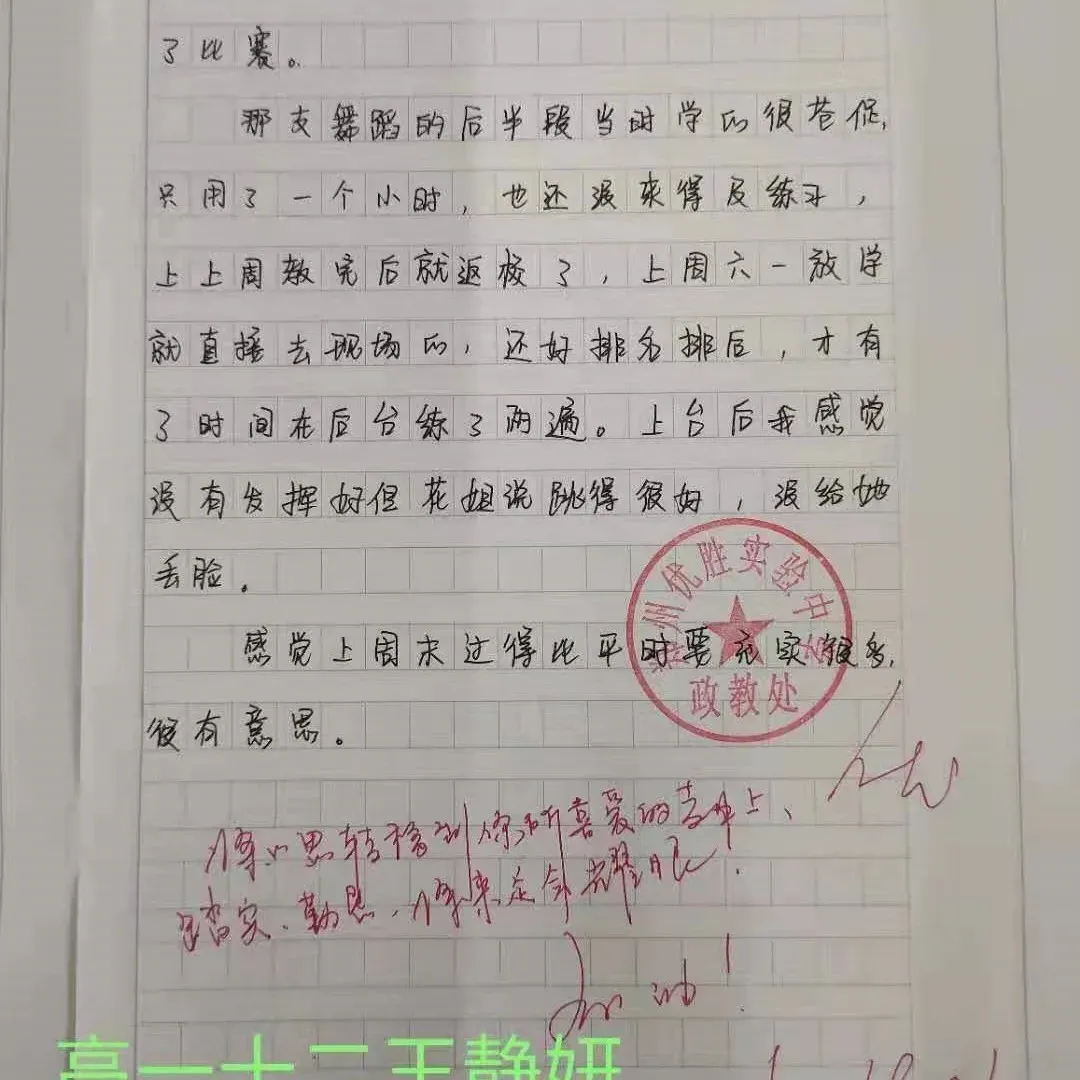 了比赛。
那支舞蹈的后半段当时学的很苍促,
只用了一个小时，也还没来得及练习，
上上周教完后就返校了，上周六一放学
就直接去现场的，还好排名排后，才有
了时间在后台练了两遍。上台后我感觉
没有发挥好但花姐说跳得很好，没给她
丢脸。
州优胜实验中学
感觉上周末过得比平时要充实很多,
政教处
很有意思。
优
将心思转移到你所喜爱的事上、
踏实、勤恳，将来定会耀眼！
加油！
高一十二王静妍